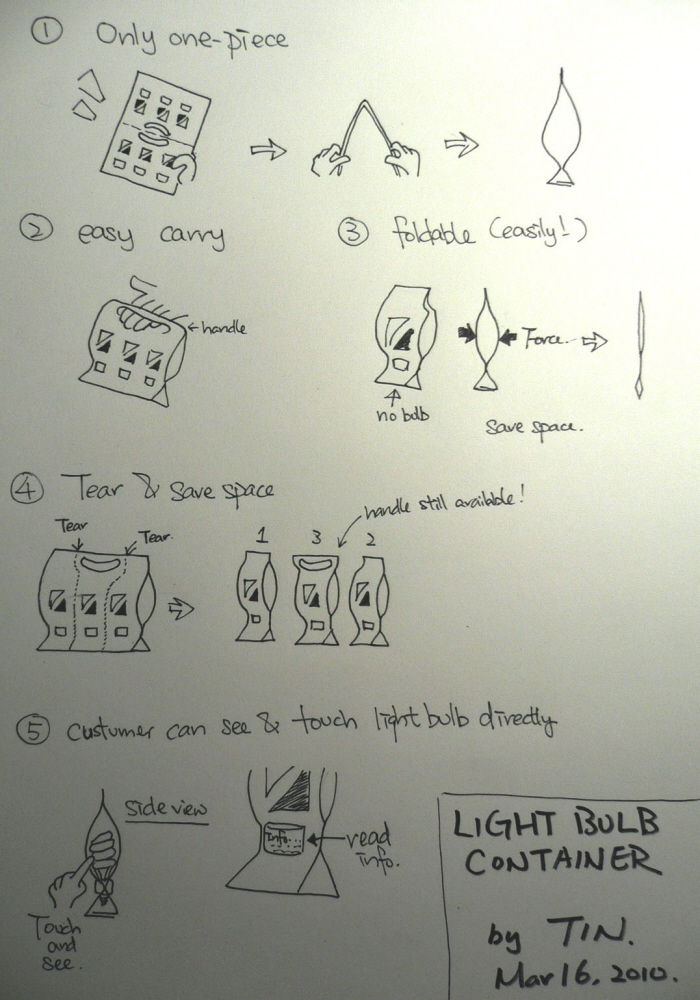 ① Only one-piece
② easy carry
handle
③ foldable (easily!)
Force.
no bulb
Save space.
④ Tear & save space
Tear
Tear.
handle still available!
1 3 2
⑤ custumer can see & touch light bulb directly
side view
Touch
and
see.
Info...
read
info.
LIGHT BULB
CONTAINER
by TIN.
Mar 16, 2010.